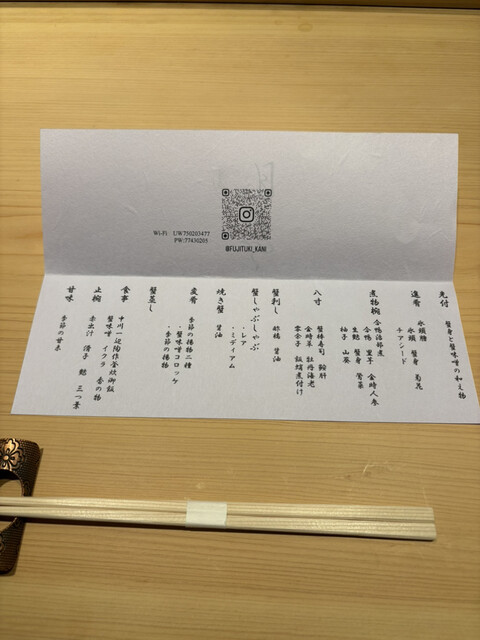 Wi-Fi UW750203477
PW:77430205
@FUJITUKI_KANI
先付
蟹身と蟹味噌の和え物
進肴
氷頭膾
氷頭 蟹身 菊花
チアシード
煮物椀
合鴨治部煮
合鴨 里芋 金時人参
生麩 蟹身 管菜
柚子 山葵
八寸
蟹棒寿司 鮟肝
金時草 牡丹海老
雲子 飯蛸煮付け
蟹刺し
酢橘 醤油
蟹しゃぶしゃぶ
・レア
・ミディアム
焼き蟹
醤油
変肴
季節の揚物二種
・蟹味噌コロッケ
・季節の揚物
蟹蒸し
食事
中川一辺陶作釜炊御飯
蟹味噌 イクラ 香の物
止椀
赤出汁 滑子 麩 三つ葉
甘味
季節の甘味